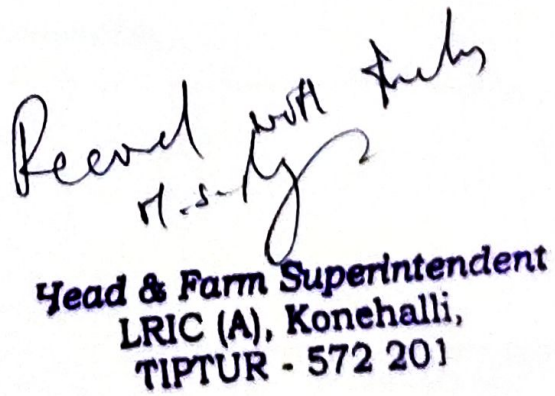 Received with thanks
Head & Farm Superintendent
LRIC (A), Konehalli,
TIPTUR - 572 201